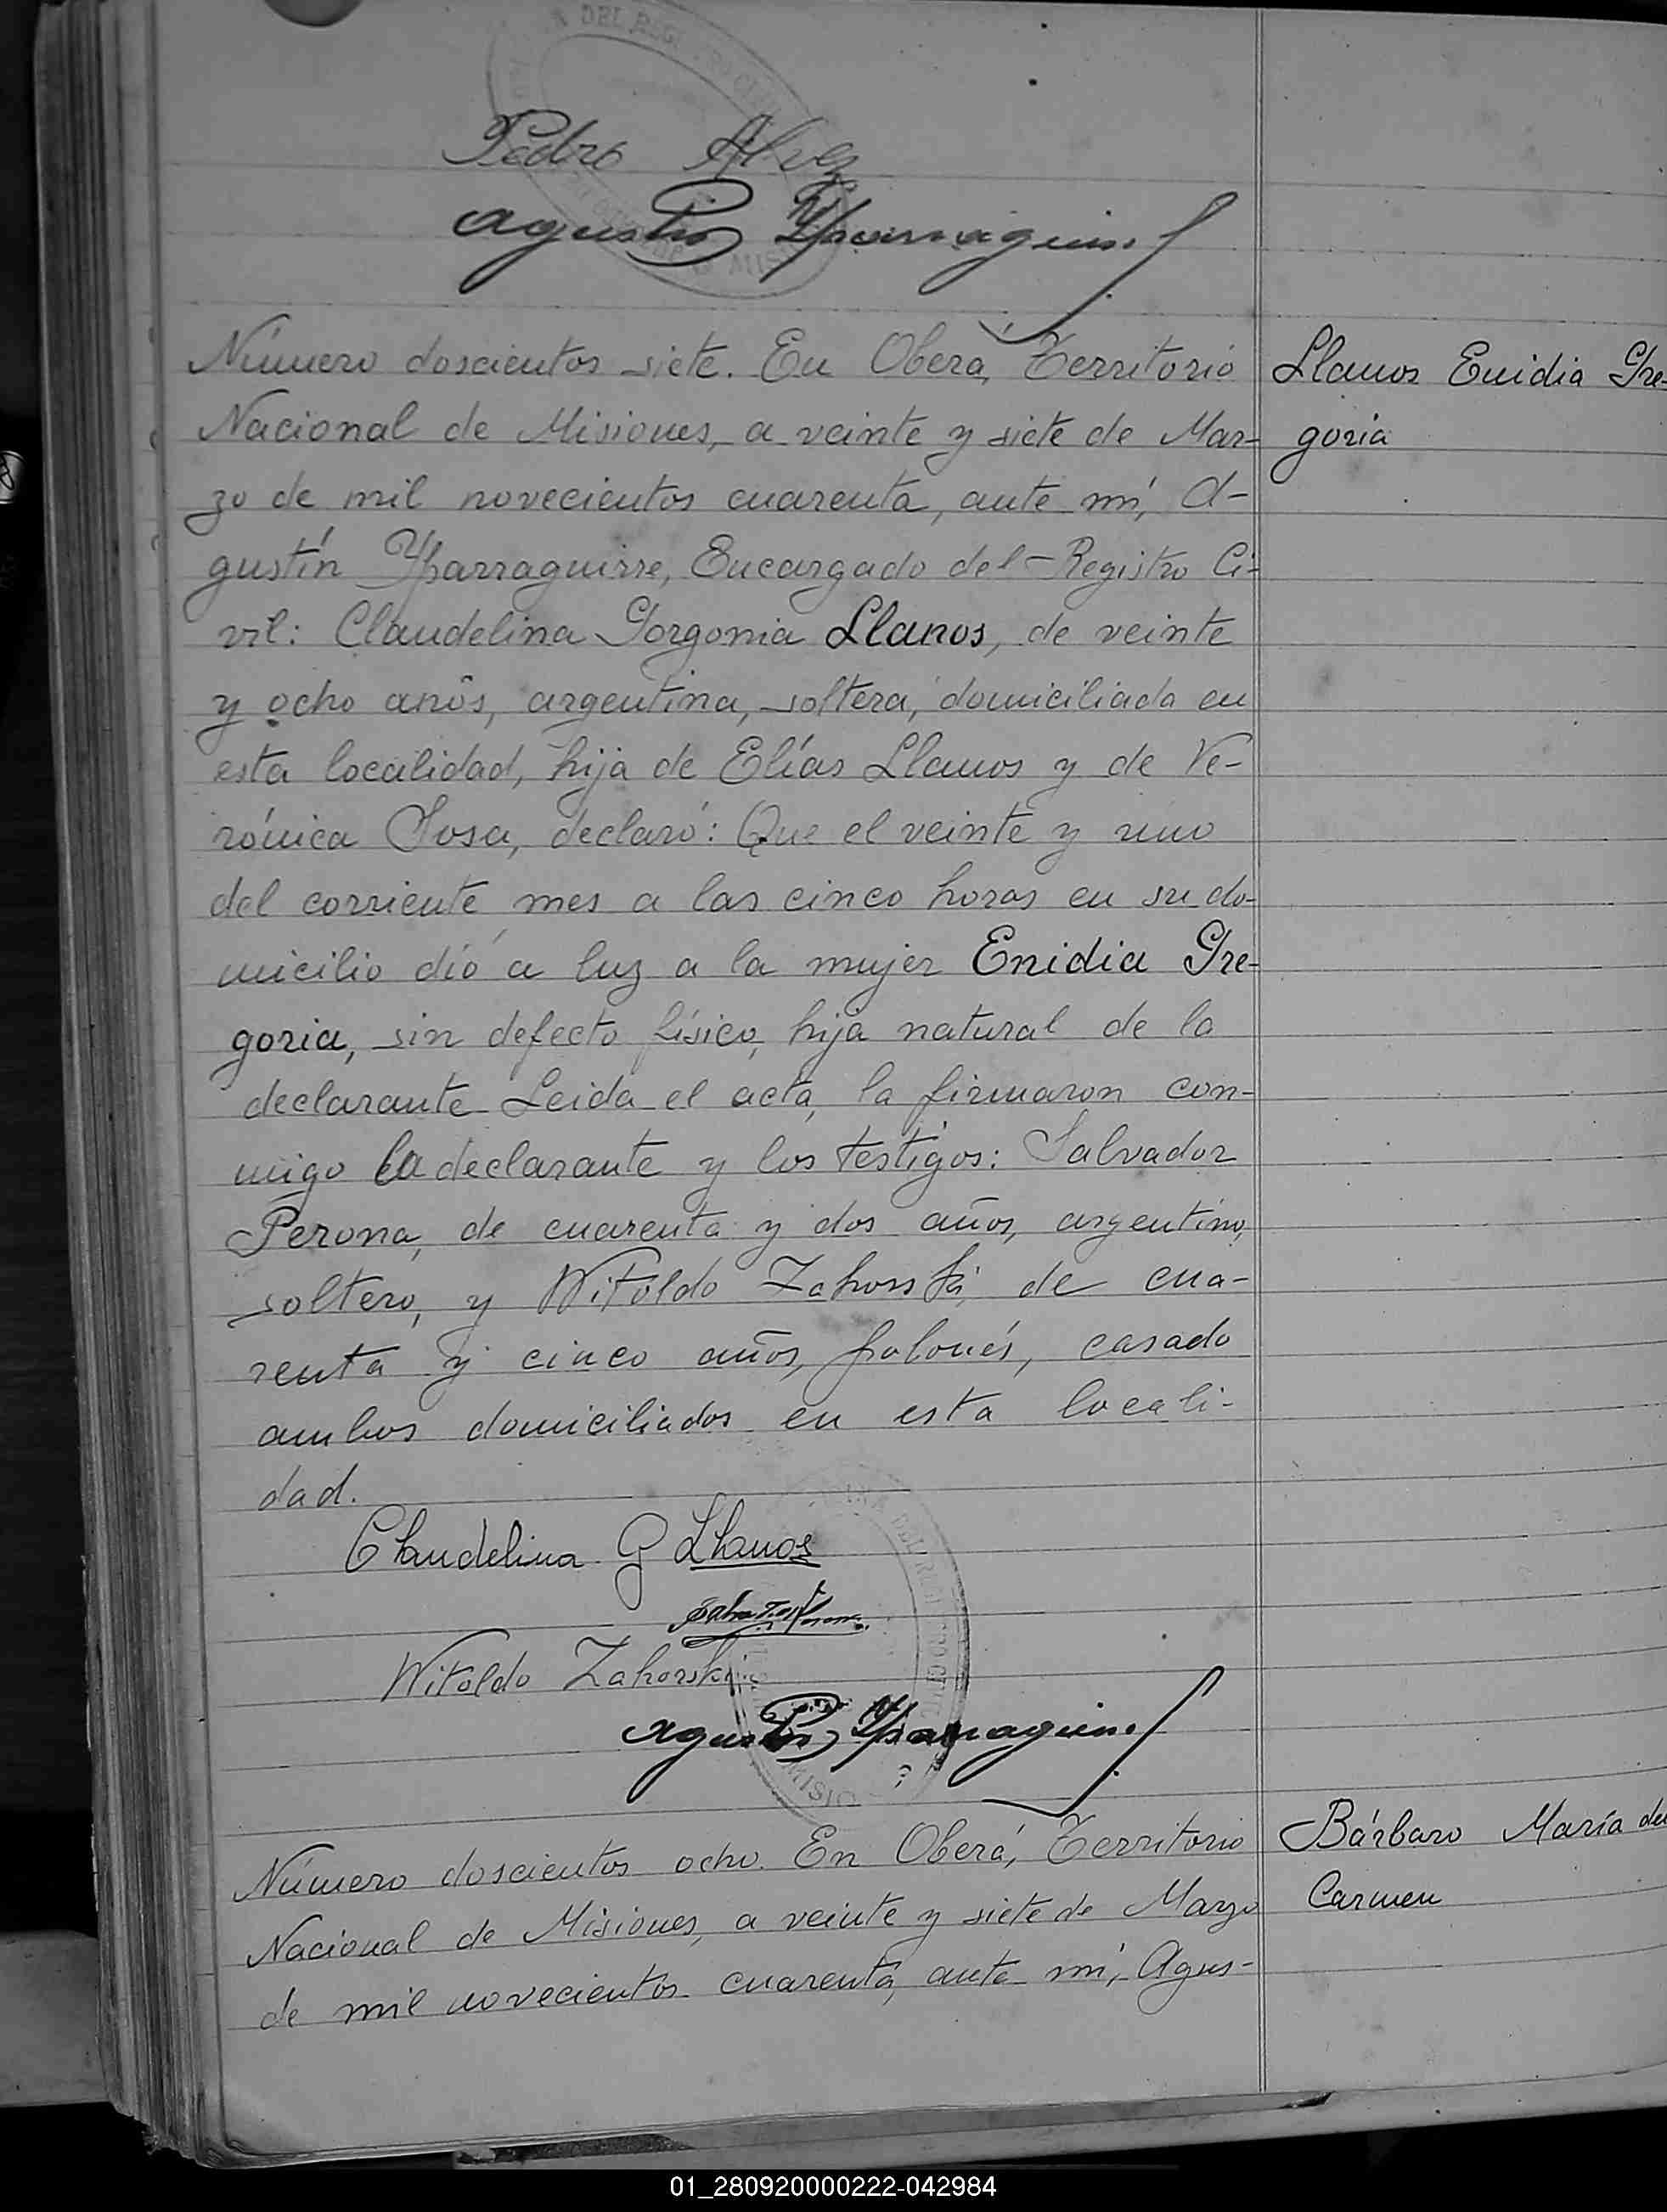 Pedro Alvez
Agustín Yparraguirre
Número doscientos siete. En Oberá, Territorio
Llanos Enidia Gre-
Nacional de Misiones, a veinte y siete de Mar-
goria
zo de mil novecientos cuarenta, ante mí, A-
gustín Yparraguirre, Encargado del Registro Ci-
vil: Claudelina Gorgonia Llanos, de veinte
y ocho anôs, argentina, soltera, domiciliada en
esta localidad, hija de Elías Llanos y de Ve-
rónica Sosa, declaró: Que el veinte y uno
del corriente mes a las cinco horas en su do-
micilio dió a luz a la mujer Enidia Gre-
goria, sin defecto físico, hija natural de la
declarante Leida el acta, la firmaron con-
migo la declarante y los testigos: Salvador
Perona, de cuarenta y dos años, argentino,
soltero, y Witoldo Zahorski, de cua-
renta y cinco años, polonés, casado
ambos domiciliados en esta locali-
dad.
Claudelina G Llanos
Witoldo Zahorski
Agustín Yparraguirre
Número doscientos ocho. En Oberá, Territorio
Bárbaro María del
Nacional de Misiones, a veinte y siete de Marzo
Carmen
de mil novecientos cuarenta, ante mí, Agus-
01_280920000222-042984